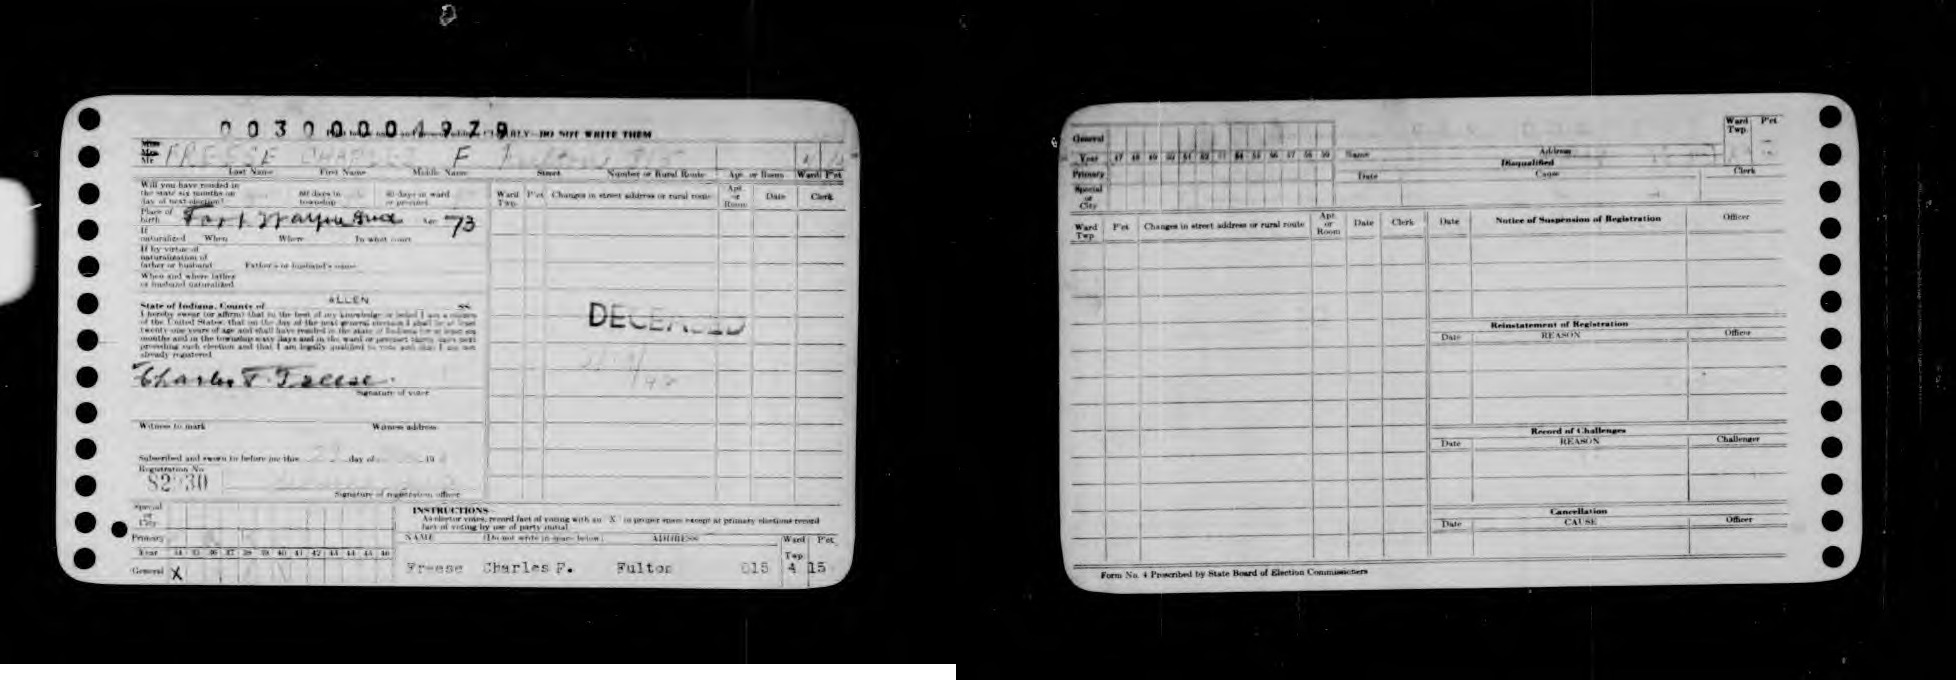 0030000 1979
CLEARLY—DO NOT WRITE THEM
Miss
Mrs.
Mr. FREESE CHARLES F Fulton
Last Name First Name Middle Name Street Number or Rural Route Apt. or Room Ward P'ct
Will you have resided in
the state six months on 60 days in 30 days in ward
day of next election? township or precinct
Ward Twp. P'ct Changes in street address or rural route Apt. or Room Date Clerk
Place of
birth Fort Wayne Ind 73
If
naturalized When Where In what court
If by virtue of
naturalization of
father or husband Father's or husband's name
When and where father
or husband naturalized
State of Indiana, County of ALLEN ss.
I hereby swear (or affirm) that to the best of my knowledge or belief I am a citizen
of the United States, that on the day of the next general election I shall be at least
twenty-one years of age and shall have resided in the state of Indiana for at least six
months and in the township sixty days and in the ward or precinct thirty days next
preceding such election and that I am legally qualified to vote and that I am not
already registered
DECEASED
Charles F. Freese
Signature of voter
Witness to mark Witness address
Subscribed and sworn to before me this day of 19
Registration No.
Signature of registration officer
Special
or
City
Primary
Year 34 35 36 37 38 39 40 41 42 43 44 45 46
General X
INSTRUCTIONS
As elector votes, record fact of voting with an "X" in proper space except at primary elections record
fact of voting by use of party initial.
NAME (Do not write in space below) ADDRESS Ward Twp. P'ct.
Freese Charles F. Fulton 615 4 15
General
Year 47 48 49 50 51 52 53 54 55 56 57 58 59
Primary
Special
or
City
Name Address Ward Twp. P'ct
Disqualified
Date Cause Clerk
Ward Twp. P'ct Changes in street address or rural route Apt. or Room Date Clerk
Date Notice of Suspension of Registration Officer
Reinstatement of Registration
Date REASON Officer
Record of Challenges
Date REASON Challenger
Cancellation
Date CAUSE Officer
Form No. 4 Prescribed by State Board of Election Commissioners